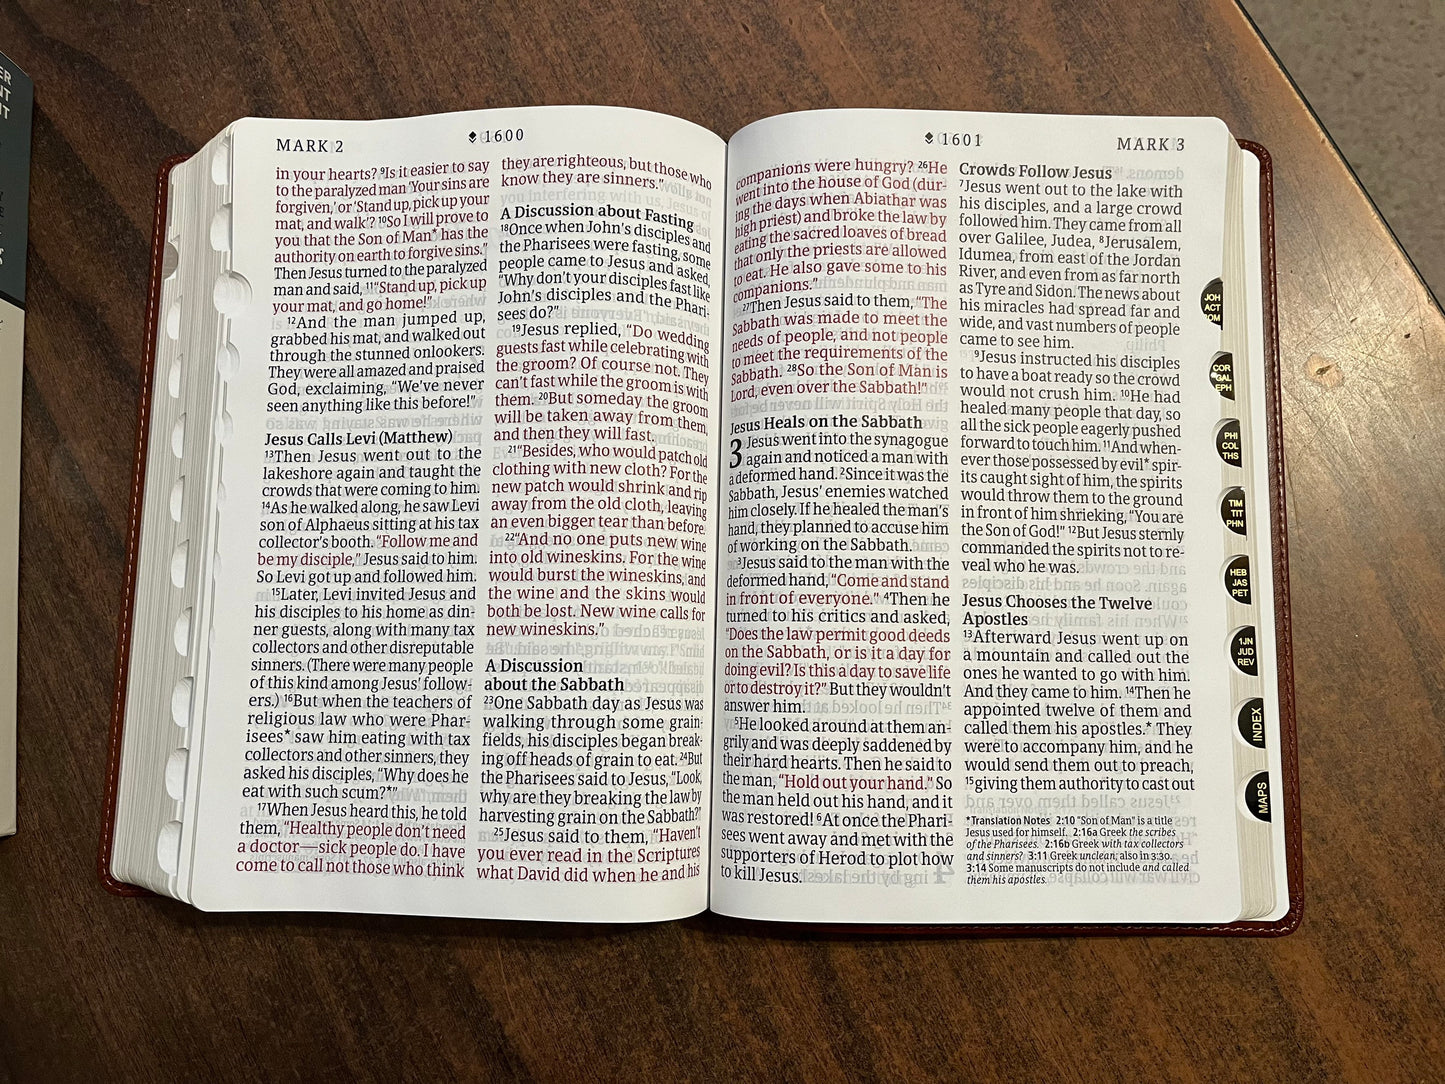 ER
NT
IT
MARK 2
1600
in your hearts? 9Is it easier to say
to the paralyzed man 'Your sins are
forgiven,' or 'Stand up, pick up your
mat, and walk'? 10So I will prove to
you that the Son of Man* has the
authority on earth to forgive sins."
Then Jesus turned to the paralyzed
man and said, 11"Stand up, pick up
your mat, and go home!"
12And the man jumped up,
grabbed his mat, and walked out
through the stunned onlookers.
They were all amazed and praised
God, exclaiming, "We've never
seen anything like this before!"
Jesus Calls Levi (Matthew)
13Then Jesus went out to the
lakeshore again and taught the
crowds that were coming to him.
14As he walked along, he saw Levi
son of Alphaeus sitting at his tax
collector's booth. "Follow me and
be my disciple," Jesus said to him.
So Levi got up and followed him.
15Later, Levi invited Jesus and
his disciples to his home as din-
ner guests, along with many tax
collectors and other disreputable
sinners. (There were many people
of this kind among Jesus' follow-
ers.) 16But when the teachers of
religious law who were Phar-
isees* saw him eating with tax
collectors and other sinners, they
asked his disciples, "Why does he
eat with such scum?*"
17When Jesus heard this, he told
them, "Healthy people don't need
a doctor—sick people do. I have
come to call not those who think
they are righteous, but those who
know they are sinners."
A Discussion about Fasting
18Once when John's disciples and
the Pharisees were fasting, some
people came to Jesus and asked,
"Why don't your disciples fast like
John's disciples and the Phari-
sees do?"
19Jesus replied, "Do wedding
guests fast while celebrating with
the groom? Of course not. They
can't fast while the groom is with
them. 20But someday the groom
will be taken away from them,
and then they will fast.
21"Besides, who would patch old
clothing with new cloth? For the
new patch would shrink and rip
away from the old cloth, leaving
an even bigger tear than before.
22"And no one puts new wine
into old wineskins. For the wine
would burst the wineskins, and
the wine and the skins would
both be lost. New wine calls for
new wineskins."
A Discussion
about the Sabbath
23One Sabbath day as Jesus was
walking through some grain-
fields, his disciples began break-
ing off heads of grain to eat. 24But
the Pharisees said to Jesus, "Look,
why are they breaking the law by
harvesting grain on the Sabbath?"
25Jesus said to them, "Haven't
you ever read in the Scriptures
what David did when he and his
1601
MARK 3
companions were hungry? 26He
went into the house of God (dur-
ing the days when Abiathar was
high priest) and broke the law by
eating the sacred loaves of bread
that only the priests are allowed
to eat. He also gave some to his
companions."
27Then Jesus said to them, "The
Sabbath was made to meet the
needs of people, and not people
to meet the requirements of the
Sabbath. 28So the Son of Man is
Lord, even over the Sabbath!"
Jesus Heals on the Sabbath
3 Jesus went into the synagogue
again and noticed a man with
a deformed hand. 2Since it was the
Sabbath, Jesus' enemies watched
him closely. If he healed the man's
hand, they planned to accuse him
of working on the Sabbath.
3Jesus said to the man with the
deformed hand, "Come and stand
in front of everyone." 4Then he
turned to his critics and asked,
"Does the law permit good deeds
on the Sabbath, or is it a day for
doing evil? Is this a day to save life
or to destroy it?" But they wouldn't
answer him.
5He looked around at them an-
grily and was deeply saddened by
their hard hearts. Then he said to
the man, "Hold out your hand." So
the man held out his hand, and it
was restored! 6At once the Phari-
sees went away and met with the
supporters of Herod to plot how
to kill Jesus.
Crowds Follow Jesus
7Jesus went out to the lake with
his disciples, and a large crowd
followed him. They came from all
over Galilee, Judea, 8Jerusalem,
Idumea, from east of the Jordan
River, and even from as far north
as Tyre and Sidon. The news about
his miracles had spread far and
wide, and vast numbers of people
came to see him.
9Jesus instructed his disciples
to have a boat ready so the crowd
would not crush him. 10He had
healed many people that day, so
all the sick people eagerly pushed
forward to touch him. 11And when-
ever those possessed by evil* spir-
its caught sight of him, the spirits
would throw them to the ground
in front of him shrieking, "You are
the Son of God!" 12But Jesus sternly
commanded the spirits not to re-
veal who he was.
Jesus Chooses the Twelve
Apostles
13Afterward Jesus went up on
a mountain and called out the
ones he wanted to go with him.
And they came to him. 14Then he
appointed twelve of them and
called them his apostles.* They
were to accompany him, and he
would send them out to preach,
15giving them authority to cast out
*Translation Notes 2:10 "Son of Man" is a title
Jesus used for himself. 2:16a Greek the scribes
of the Pharisees. 2:16b Greek with tax collectors
and sinners? 3:11 Greek unclean; also in 3:30.
3:14 Some manuscripts do not include and called
them his apostles.
JOH
ACT
COR
GAL
EPH
PHI
COL
THS
TIM
TIT
PHN
HEB
JAS
PET
1JN
JUD
REV
INDEX
MAPS